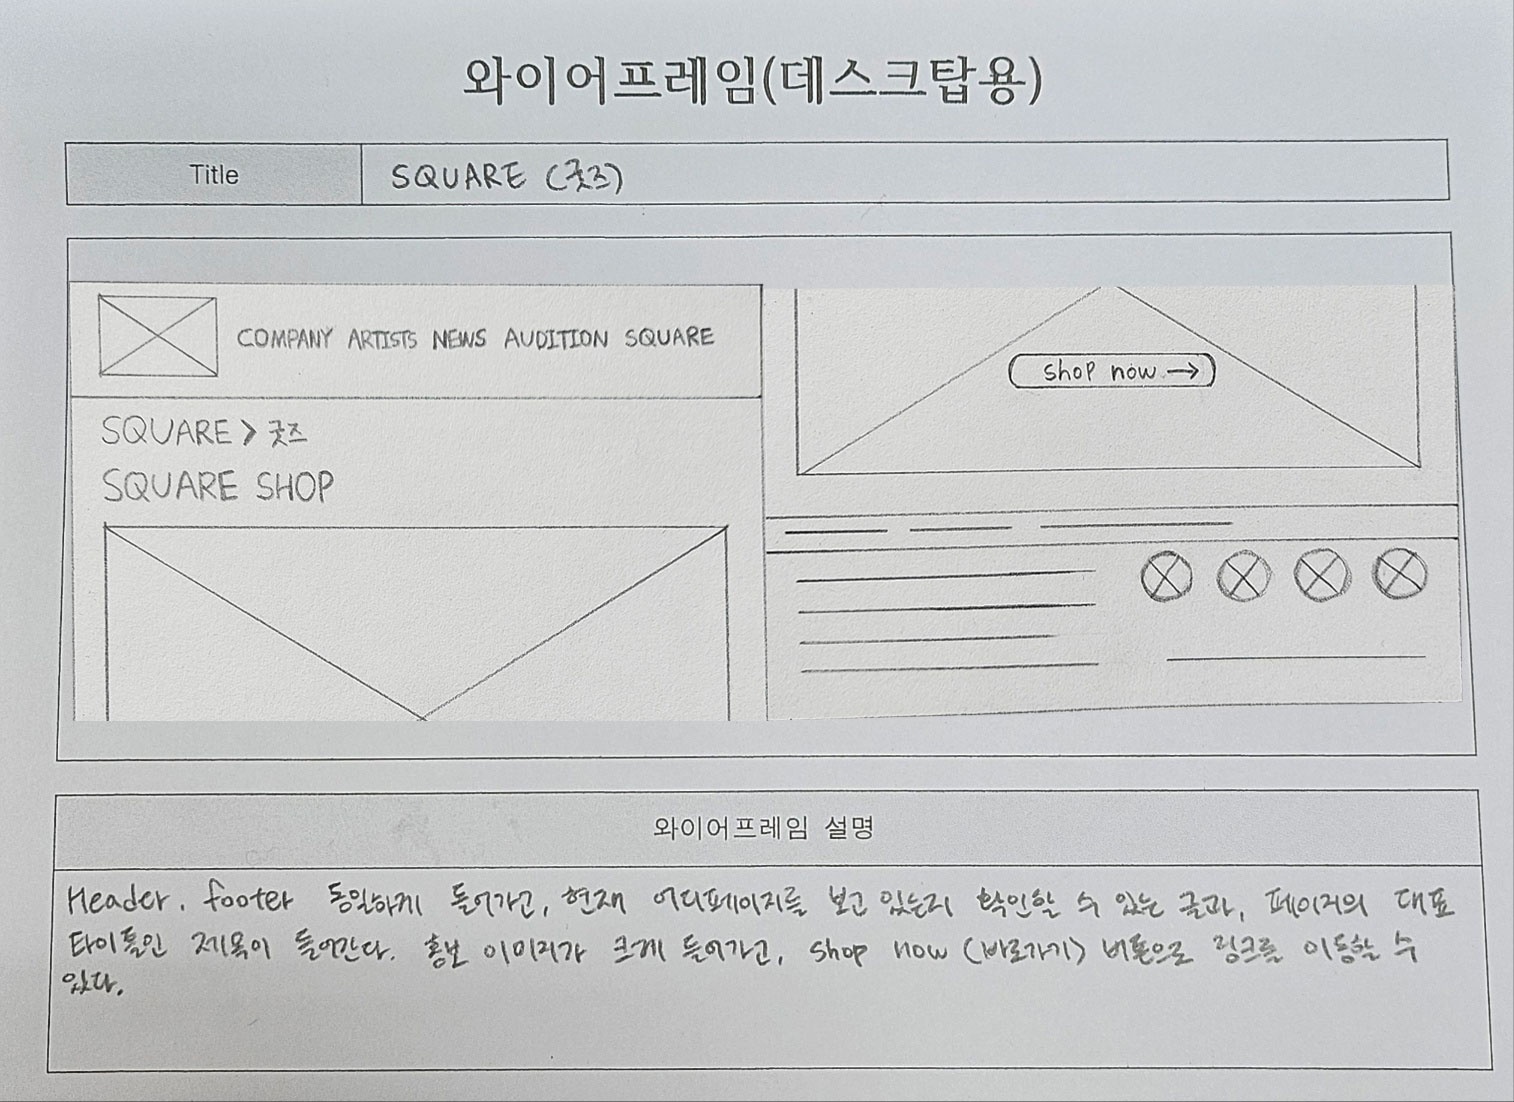 와이어프레임(데스크탑용)
Title
SQUARE (굿즈)
COMPANY ARTISTS NEWS AUDITION SQUARE
SQUARE > 굿즈
SQUARE SHOP
shop now →
와이어프레임 설명
Header, footer 동일하게 들어가고, 현재 어디페이지를 보고 있는지 확인할 수 있는 글과, 페이지의 대표
타이틀인 제목이 들어간다. 홍보 이미지가 크게 들어가고, shop now (바로가기) 버튼으로 링크를 이동할 수
있다.